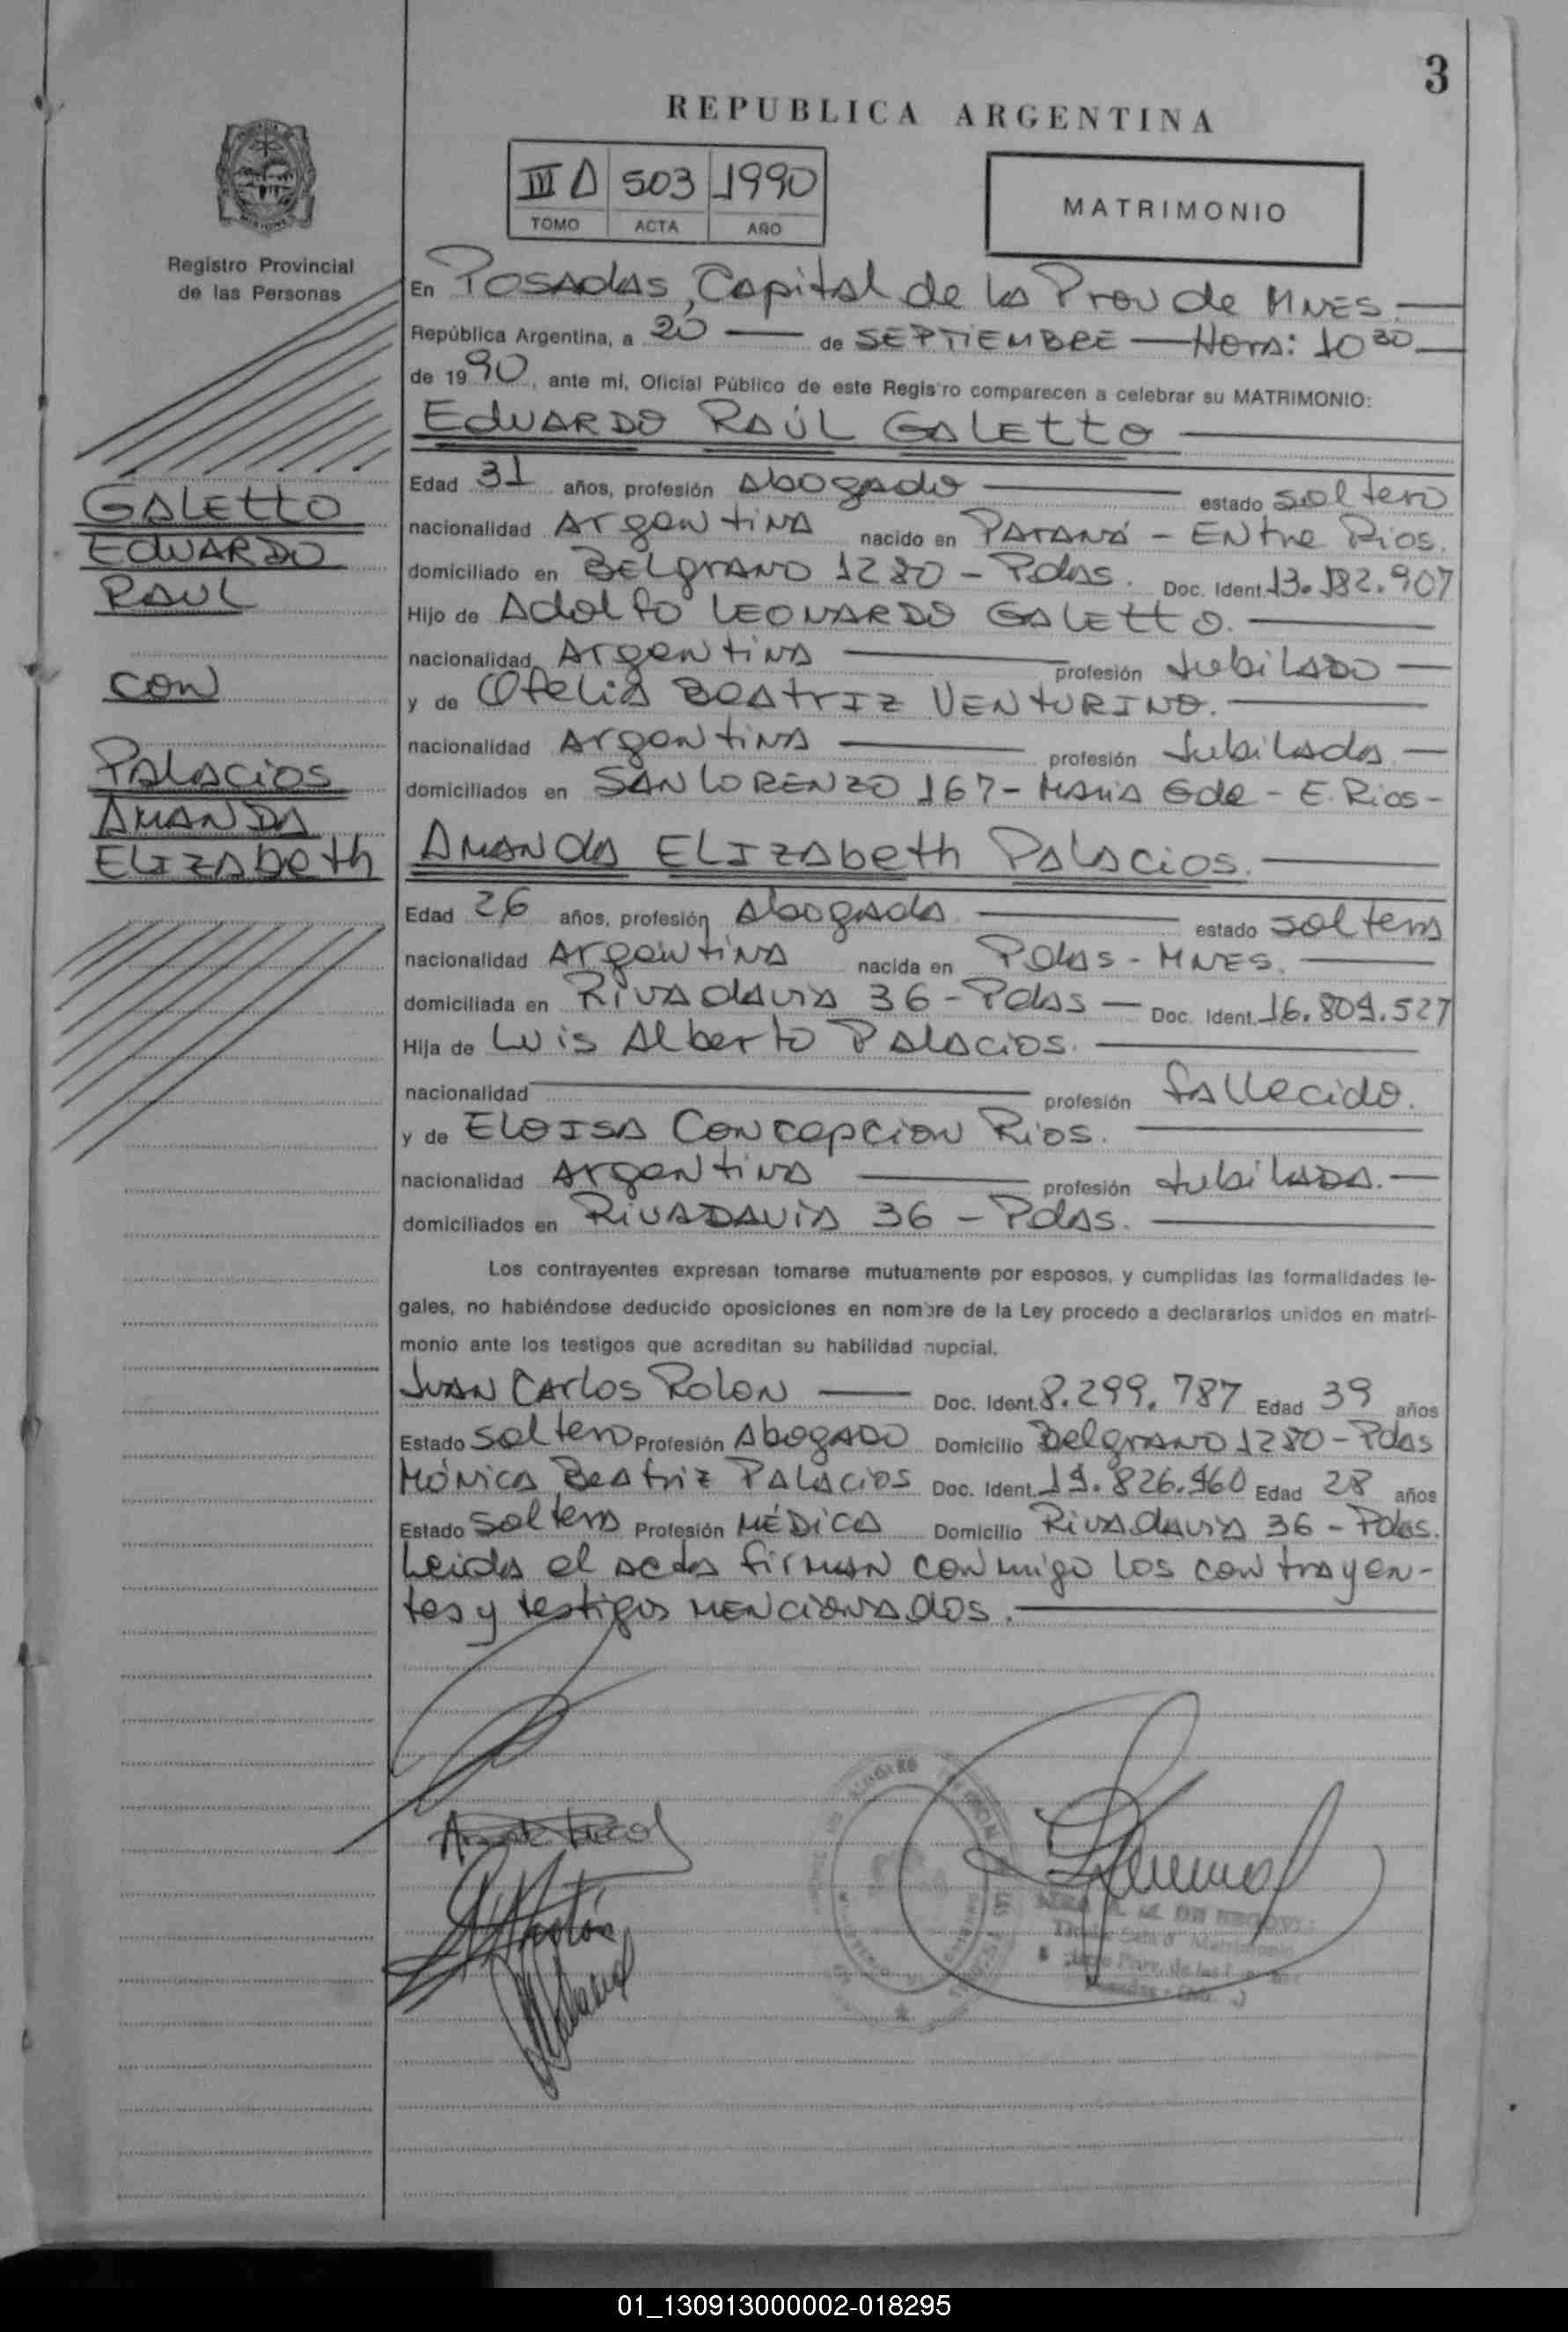 3
REPUBLICA ARGENTINA
III Δ 503 1990
TOMO ACTA AÑO
MATRIMONIO
Registro Provincial
de las Personas
En Posadas, Capital de la Prov de Mnes.
República Argentina, a 20 de SEPTIEMBRE Hora: 10 30
de 1990, ante mí, Oficial Público de este Registro comparecen a celebrar su MATRIMONIO:
EDUARDO RAÚL GALETTO
Edad 31 años, profesión Abogado estado soltero
nacionalidad Argentina nacido en Paraná - Entre Rios.
domiciliado en BELgrANO 1280 - Pdas. Doc. Ident. 13.182.907
Hijo de Adolfo LEONARDO GALETTO.
nacionalidad Argentina profesión Jubilado
y de Ofelia Beatriz VENTURINO.
nacionalidad Argentina profesión Jubilada
domiciliados en SAN LORENZO 167 - Maria Gde - E. Rios -
AMANDA ELIZAbeth Palacios.
Edad 26 años, profesión Abogada estado soltera
nacionalidad Argentina nacida en Pdas - Mnes.
domiciliada en Rivadavia 36 - Pdas Doc. Ident. 16.809.527
Hija de Luis Alberto Palacios.
nacionalidad profesión fallecido.
y de ELOISA Concepcion Rios.
nacionalidad Argentina profesión Jubilada.
domiciliados en RIVADAVIA 36 - Pdas.
Los contrayentes expresan tomarse mutuamente por esposos, y cumplidas las formalidades le-
gales, no habiéndose deducido oposiciones en nombre de la Ley procedo a declararlos unidos en matri-
monio ante los testigos que acreditan su habilidad nupcial.
Juan Carlos Rolon Doc. Ident. 8.299.787 Edad 39 años
Estado soltero Profesión Abogado Domicilio Belgrano 1280 - Pdas
Mónica Beatriz Palacios Doc. Ident. 14.826.960 Edad 28 años
Estado soltera Profesión MÉDICA Domicilio Rivadavia 36 - Pdas.
Leida el acta firman conmigo los contrayen-
tes y testigos mencionados.
GALETTO
EDUARDO
RAUL
CON
Palacios
AMANDA
ELIZAbeth
01_130913000002-018295